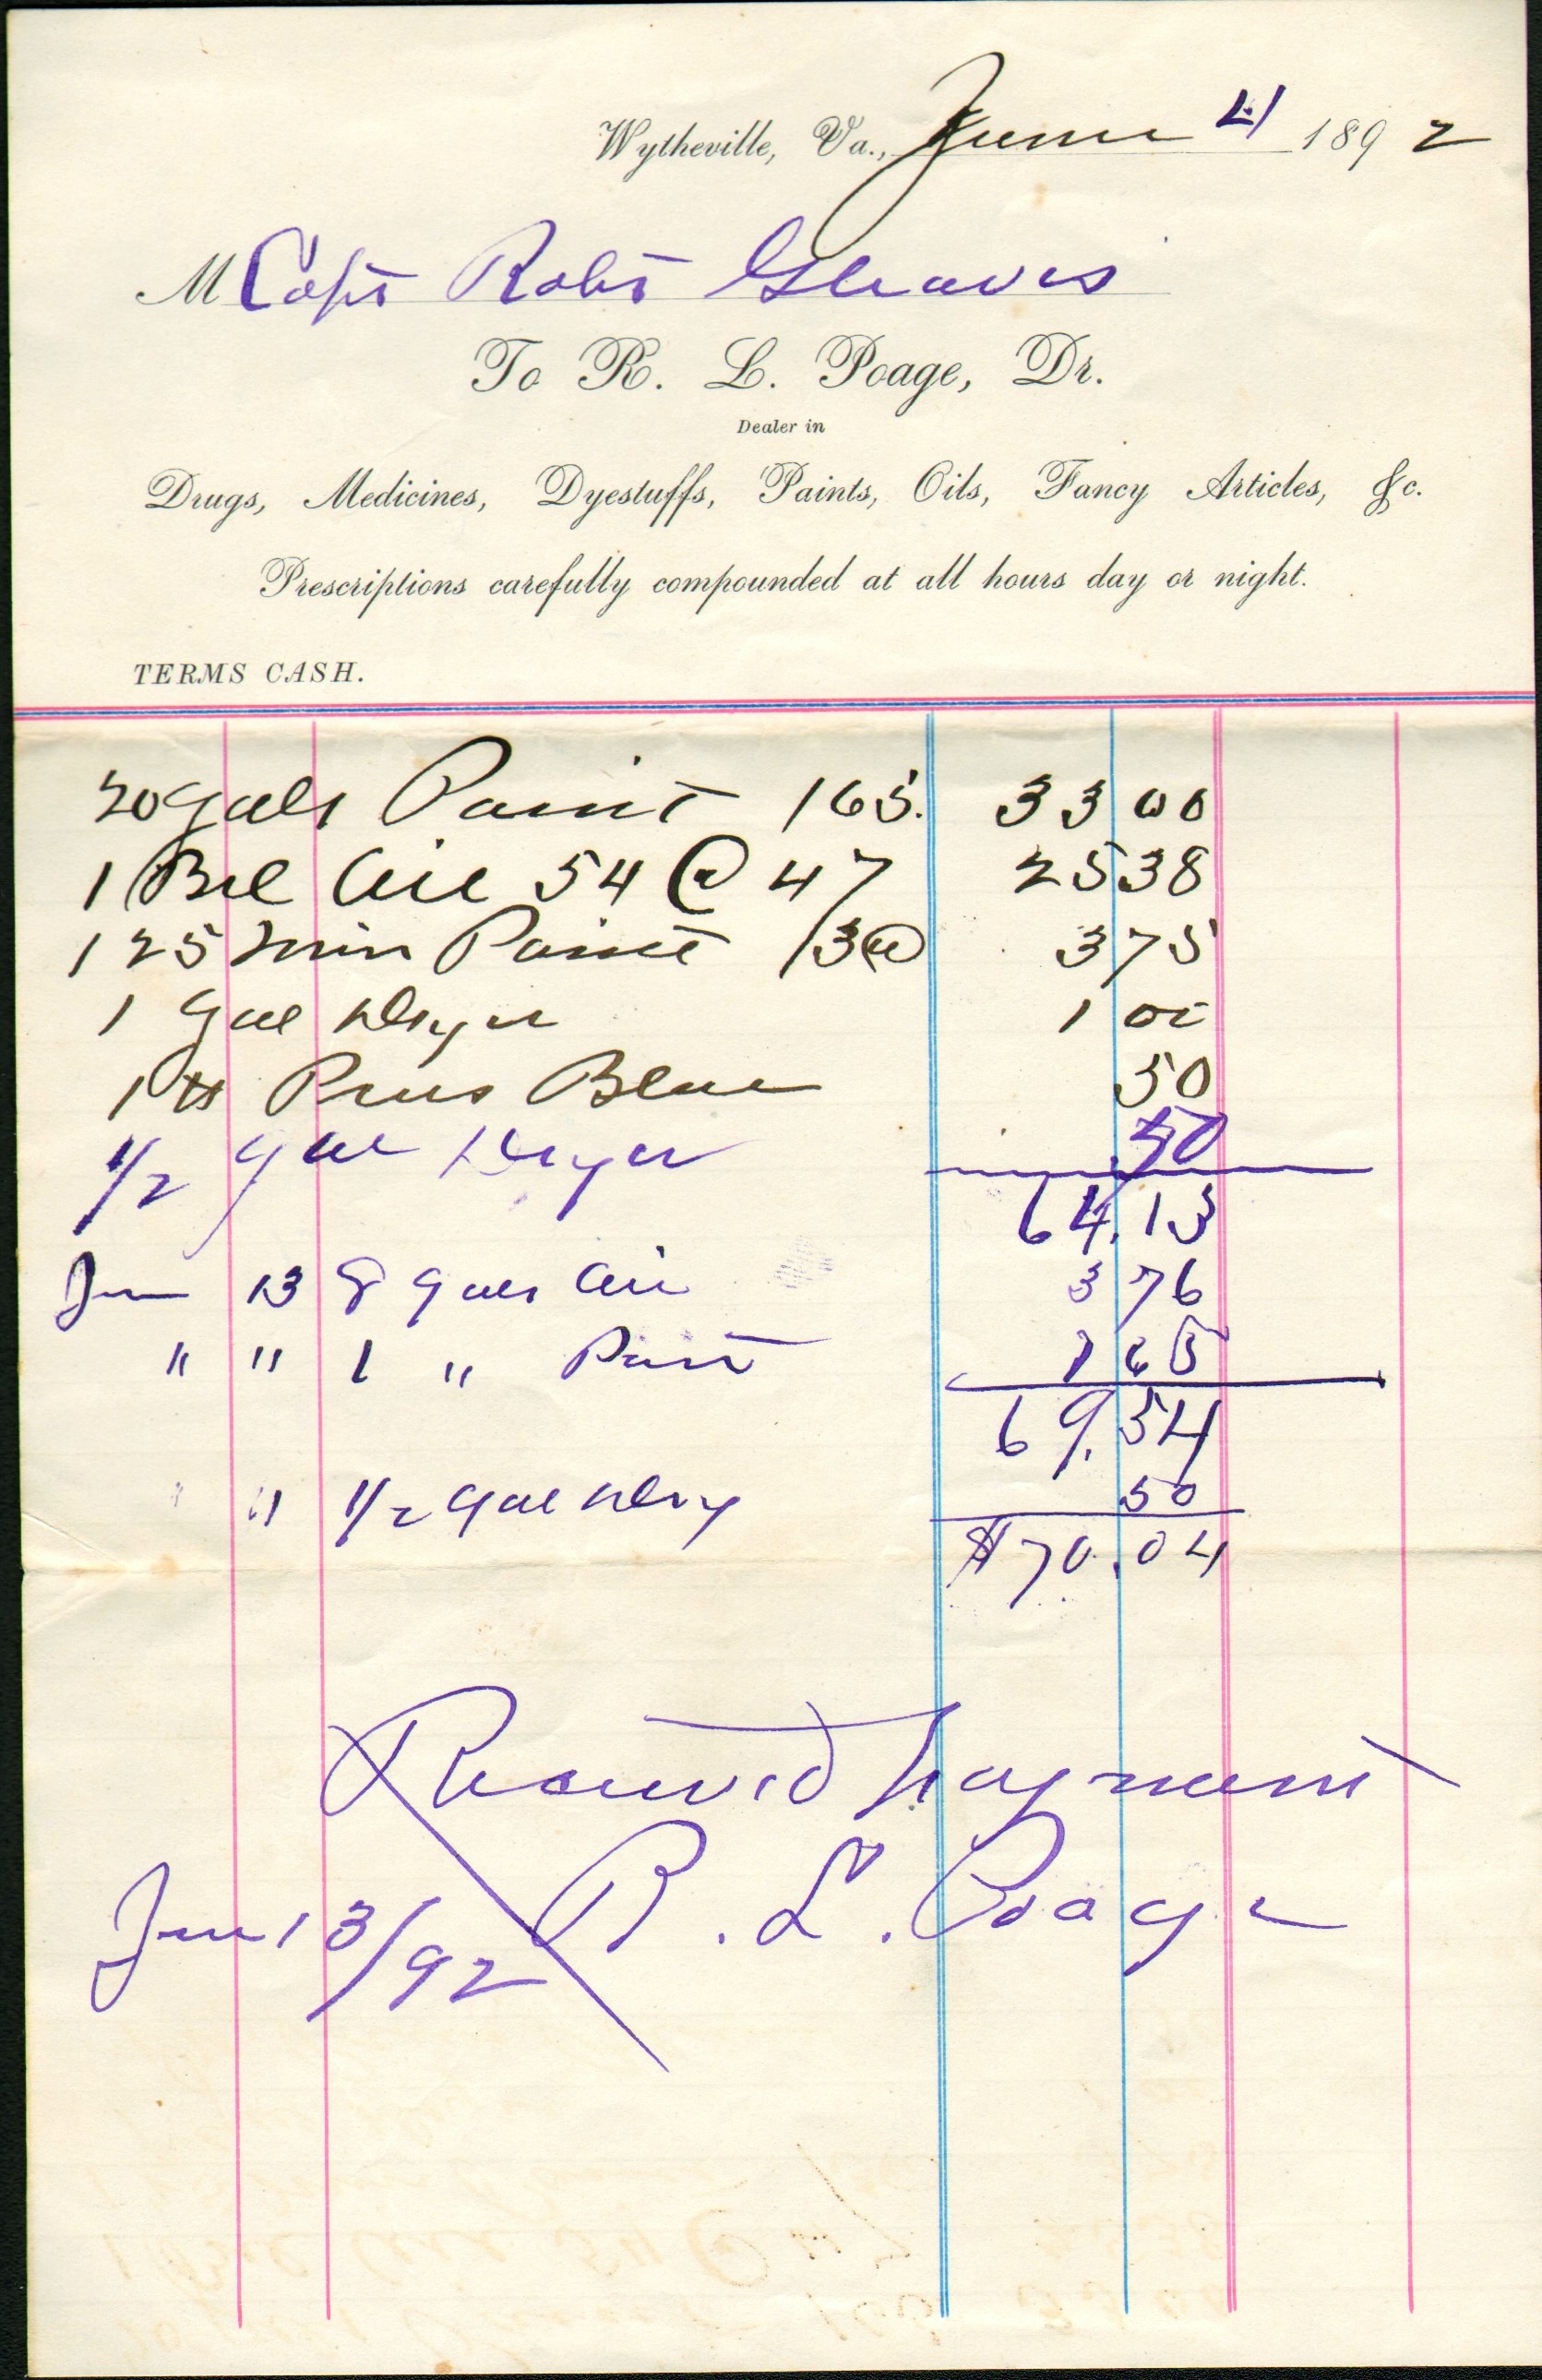 Wytheville, Va., June 4 1892
M Capt Robt Gleaves
To R. L. Poage, Dr.
Dealer in
Drugs, Medicines, Dyestuffs, Paints, Oils, Fancy Articles, &c.
Prescriptions carefully compounded at all hours day or night.
TERMS CASH.
20 gals Paint 165. 33 00
1 Bbl Oil 54 @ 47 25 38
125 Min Paint /3@ 3 75
1 Gal Dryer 1 00
1 lb Prus Blue 50
1/2 gal Dryer .50
64.13
Jun 13 8 gals Oil 3 76
" " 1 " Paint 1 65
69.54
" " 1/2 gal Dry 50
$70.04
Received payment
R. L. Poage
Jun 13/92